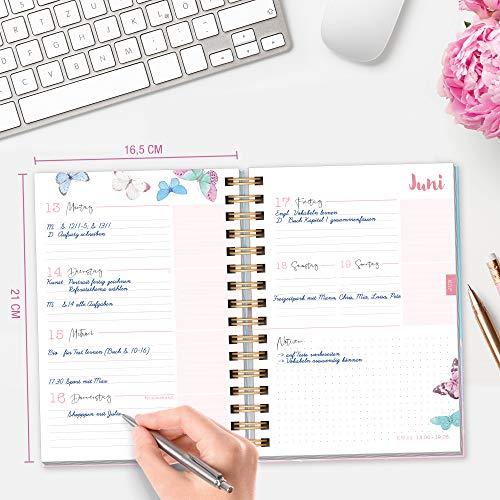 16,5 CM
21 CM
13 Montag
M S. 12/1-5, S. 13/1
D Aufsatz schreiben
14 Dienstag
Kunst Portrait fertig zeichnen
Referatsthema wählen
M S.14 alle Aufgaben
15 Mittwoch
Bio für Test lernen (Buch S. 10-16)
17:30 Sport mit Max
16 Donnerstag
Shoppen mit Jules
Juni
17 Freitag
Engl. Vokabeln lernen
D Buch Kapitel 1 zusammenfassen
18 Samstag 19 Sonntag
Freizeitpark mit Mama, Chris, Mia, Luisa, Pete
Notizen
→ auf Tests vorbereiten
→ Vokabeln auswendig können